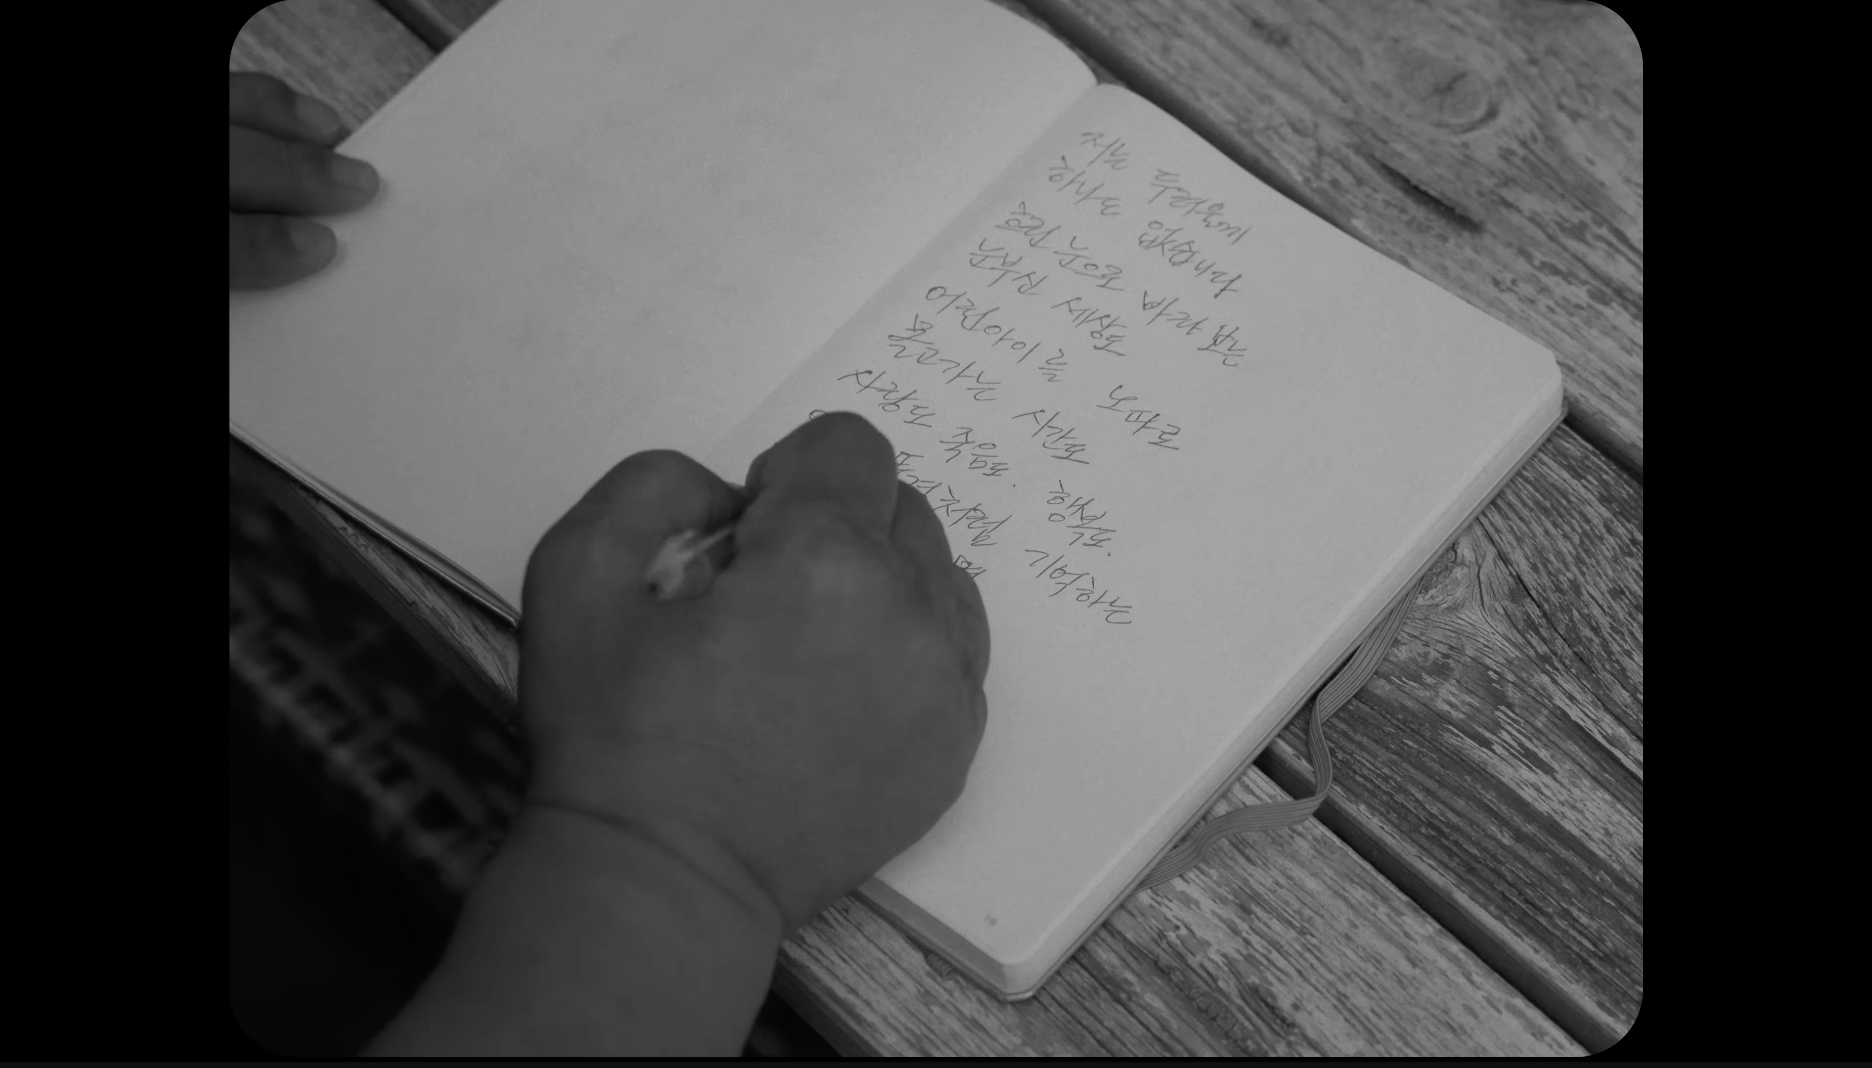 저는 두려울게
하나도 없습니다
흐린 눈으로 바라 보는
눈부신 세상도
어린아이를 노파로
끌고가는 시간도
사랑도 죽음도. 행복도.
기억하는